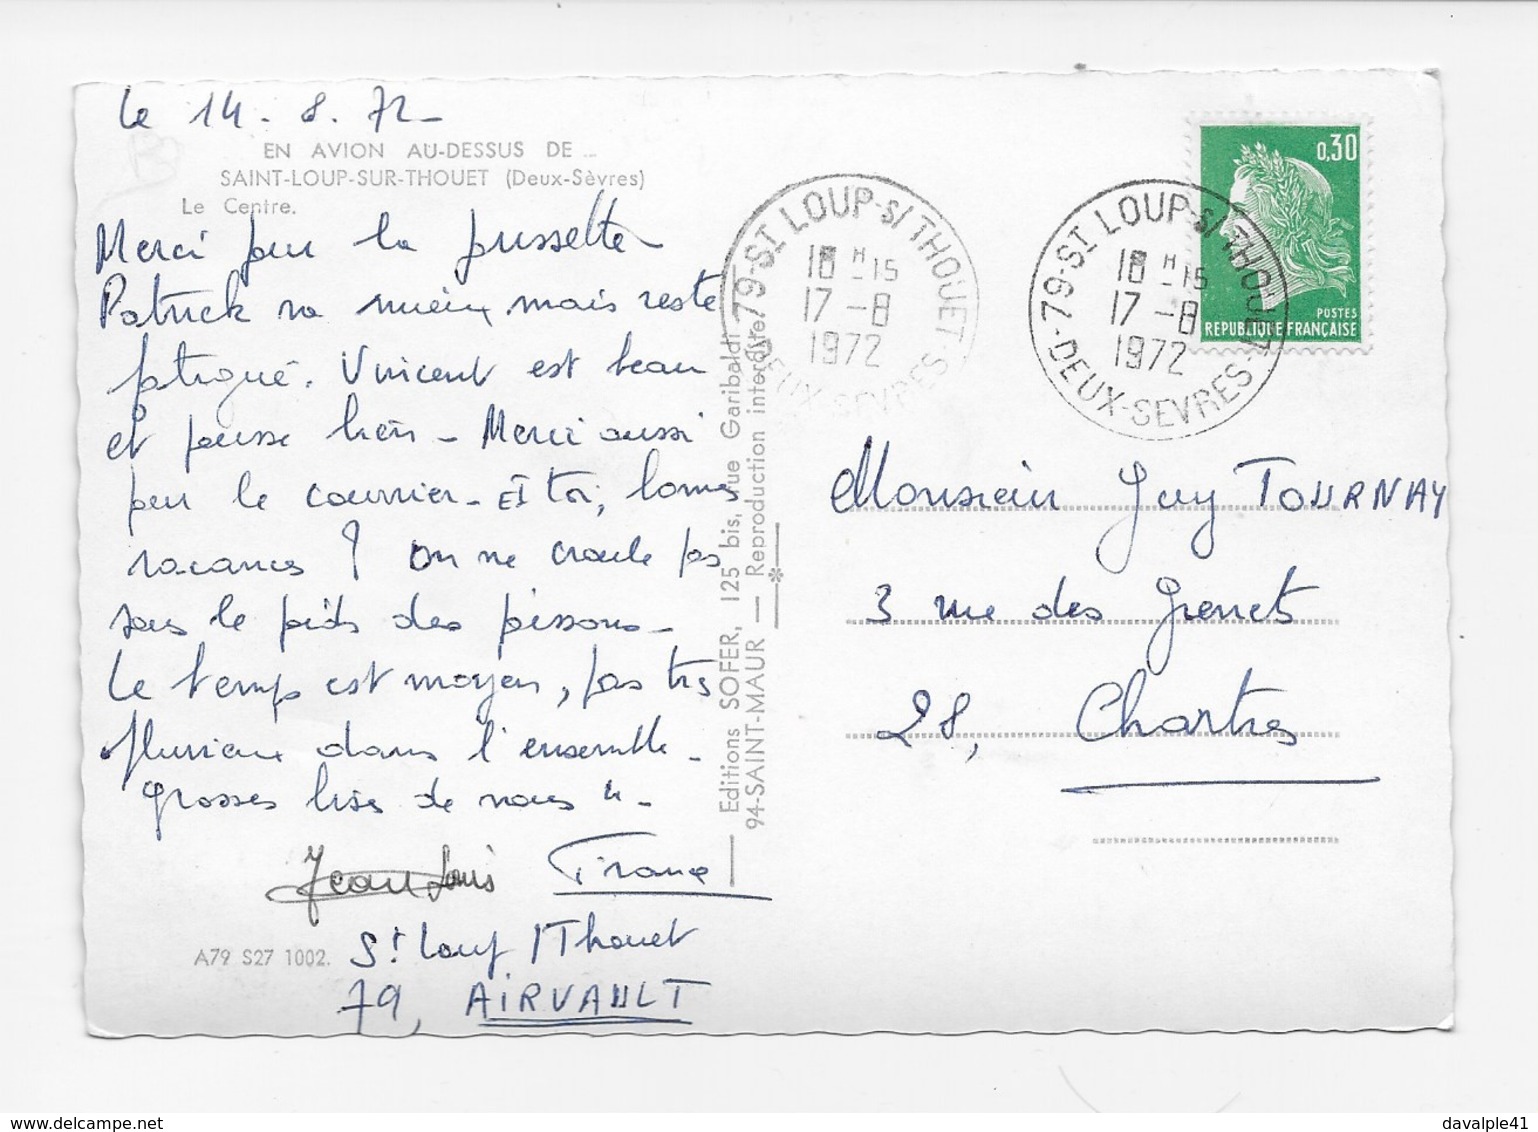 le 14 - 8. 72 -
EN AVION AU-DESSUS DE ...
SAINT-LOUP-SUR-THOUET (Deux-Sèvres)
Le Centre.
Merci pour la poussette
Patrick va mieux mais reste
fatigué. Vincent est beau
et pousse bien - Merci aussi
pour le courrier - Et toi, bonnes
vacances ? On ne croule pas
sous le poids des poissons -
Le temps est moyen, pas très
pluvieux dans l'ensemble -
Grosses bises de nous 4 -
Jean Louis
St Loup / Thouet
79, AIRVAULT
A79 S27 1002.
Editions SOFER, 125 bis, rue Garibaldi
94-SAINT-MAUR — Reproduction interdite
79-ST LOUP-S/THOUET
18 H 15
17 -8
1972
DEUX-SEVRES
79-ST LOUP-S/THOUET
18 H 15
17 -8
1972
DEUX-SEVRES
0,30
POSTES
REPUBLIQUE FRANÇAISE
Monsieur Guy TOURNAY
3 rue des Genets
28, Chartres
http://www.delcampe.net
davalple41